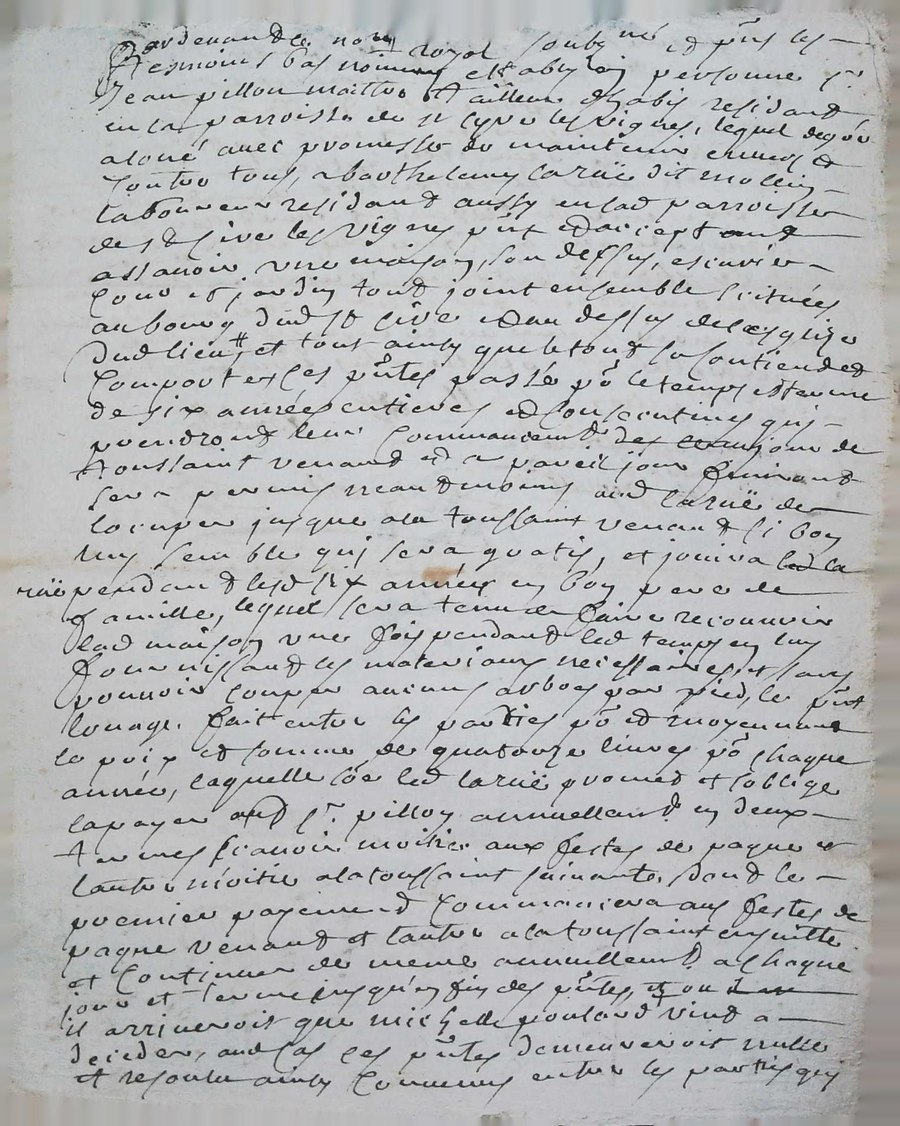 Pardevand le no.re royal soubz.né et p.ns les
tesmoins bas nommés estably en personne s.r
Jean pillon maitre tailleur d'habis residant
en la parroisse de st cyre les vignes, lequel de gré
a loué avec promesse de maintenir envers et
contre tous, a barthelemy laruë dit mollin
laboureur residand aussy en lad parroisse
de st cire les vignes p.nt et acceptand
assavoir une maison, son dessus, escurie
cour et jardin tout joint ensemble scituées
au bourg dud st cire au dessus de l'esglize
dud lieu, et tout ainsy que le tout se contiend et
comporte, ces p.ntes passé p.r le temps et terme
de six années entieres et consecutives qui
prendront leur commancem.t des jour de
toussaint venand et a pareil jour finiront
sera permis neantmoins aud laruë de
loccuper jusque a la toussaint venand si bon
luy semble qui sera gratis, et jouira led la
ruë pendand lesd six années en bon pere de
famille, lequel sera tenu de faire recouvrir
lad maison une fois pendand led temps en luy
fournissand les materiaux necessaires, et sans
pouvoir couper aucuns arbres par pied, le p.nt
louage fait entre les parties p.r et moyennant
le prix et somme de quatorze livres p.r chaque
année, laquelle s.e led laruë promet et soblige
la payer aud s.r pillon annuellem.t en deux
termes scavoir moitie aux festes de paque et
lautre moitie a la toussaint suivante, dond le
premier payement commancera aux festes de
paque venand et lautre a la toussaint ensuitte
et continuer de meme annuellem.t a chaque
jour et terme jusqu'en fin des p.ntes, et ou
il arriveroit que michelle poulard vint a
deceder, aud cas ces p.ntes demeureroit nulle
et resolu ainsy convenus entre les parties qui